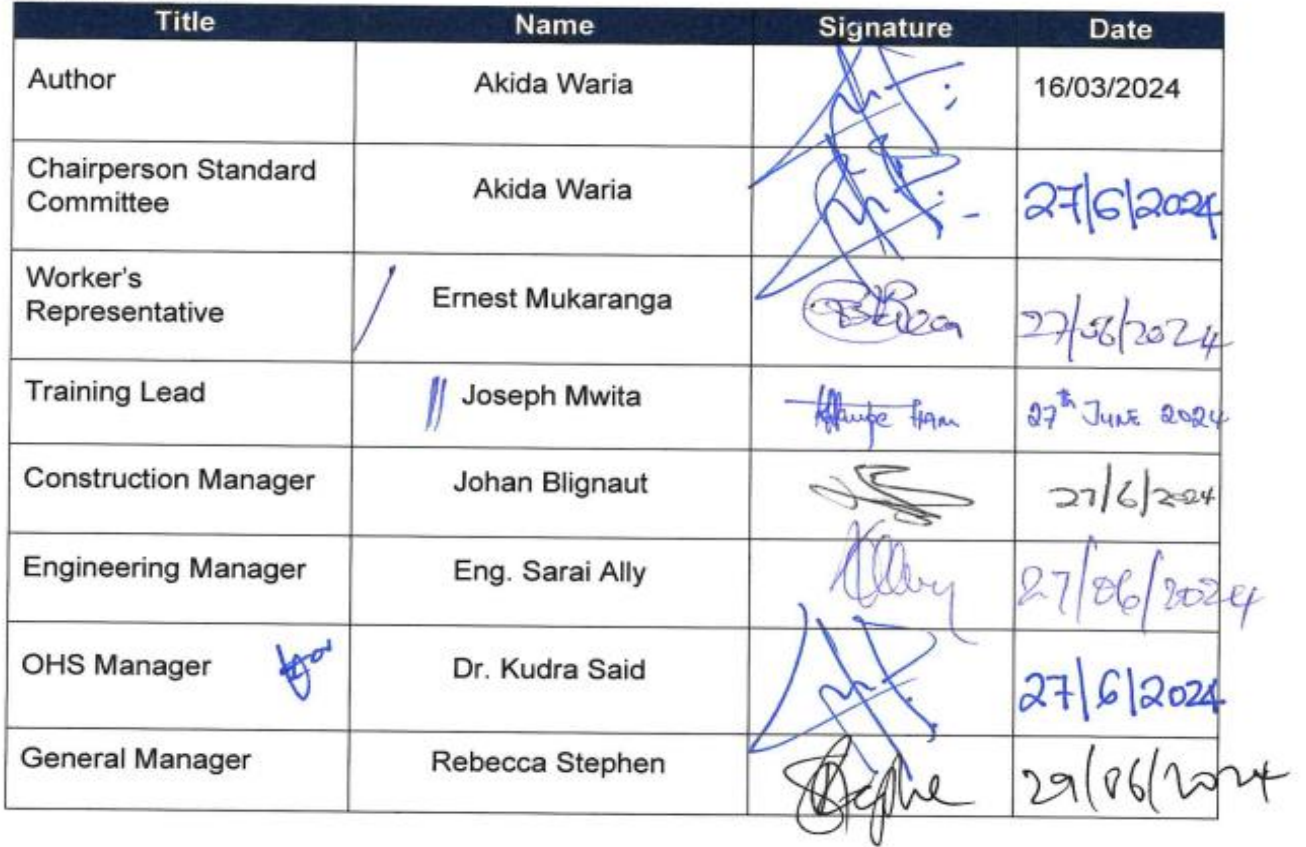 Title Name Signature Date
Author Akida Waria 16/03/2024
Chairperson Standard
Committee Akida Waria 27/6/2024
Worker's
Representative Ernest Mukaranga 27/06/2024
Training Lead Joseph Mwita 27th JUNE 2024
Construction Manager Johan Blignaut 27/6/2024
Engineering Manager Eng. Sarai Ally 27/06/2024
OHS Manager for Dr. Kudra Said 27/6/2024
General Manager Rebecca Stephen 29/06/2024